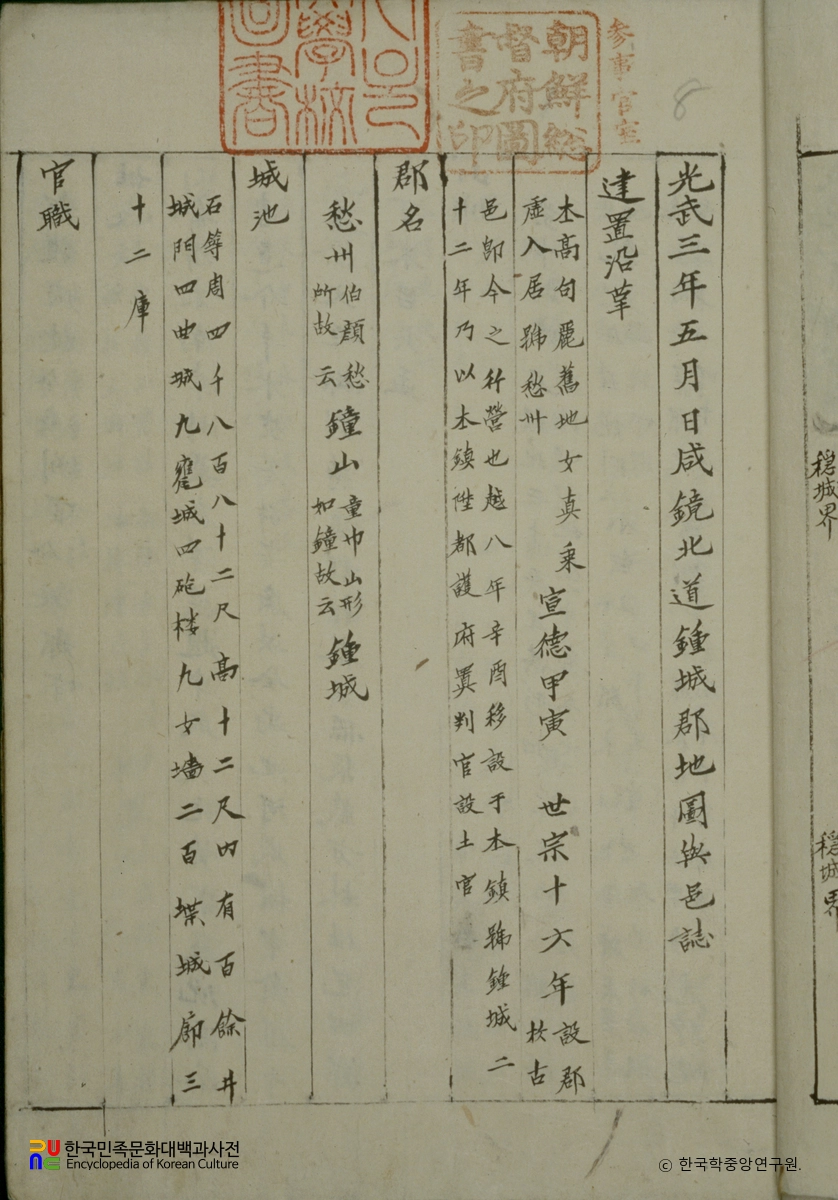 穩城界
穩城界
8
參事官室
朝鮮總
督府圖
書之印
光武三年五月日咸鏡北道鍾城郡地圖與邑誌
建置沿革
本高句麗舊地女真乘
虛入居號愁州
宣德甲寅 世宗十六年
設郡
於古
邑卽今之行營也越八年辛酉移設于本鎮號鍾城二
十二年乃以本鎮陞都護府置判官設土官
郡名
愁州 伯顔愁所故云 鐘山 童巾山形如鐘故云 鍾城
城池
石築周四千八百八十二尺高十二尺內有百餘井
城門四曲城九甕城四砲樓九女墻二百堞城廊三
十二庫
官職
한국민족문화대백과사전
Encyclopedia of Korean Culture
ⓒ 한국학중앙연구원.